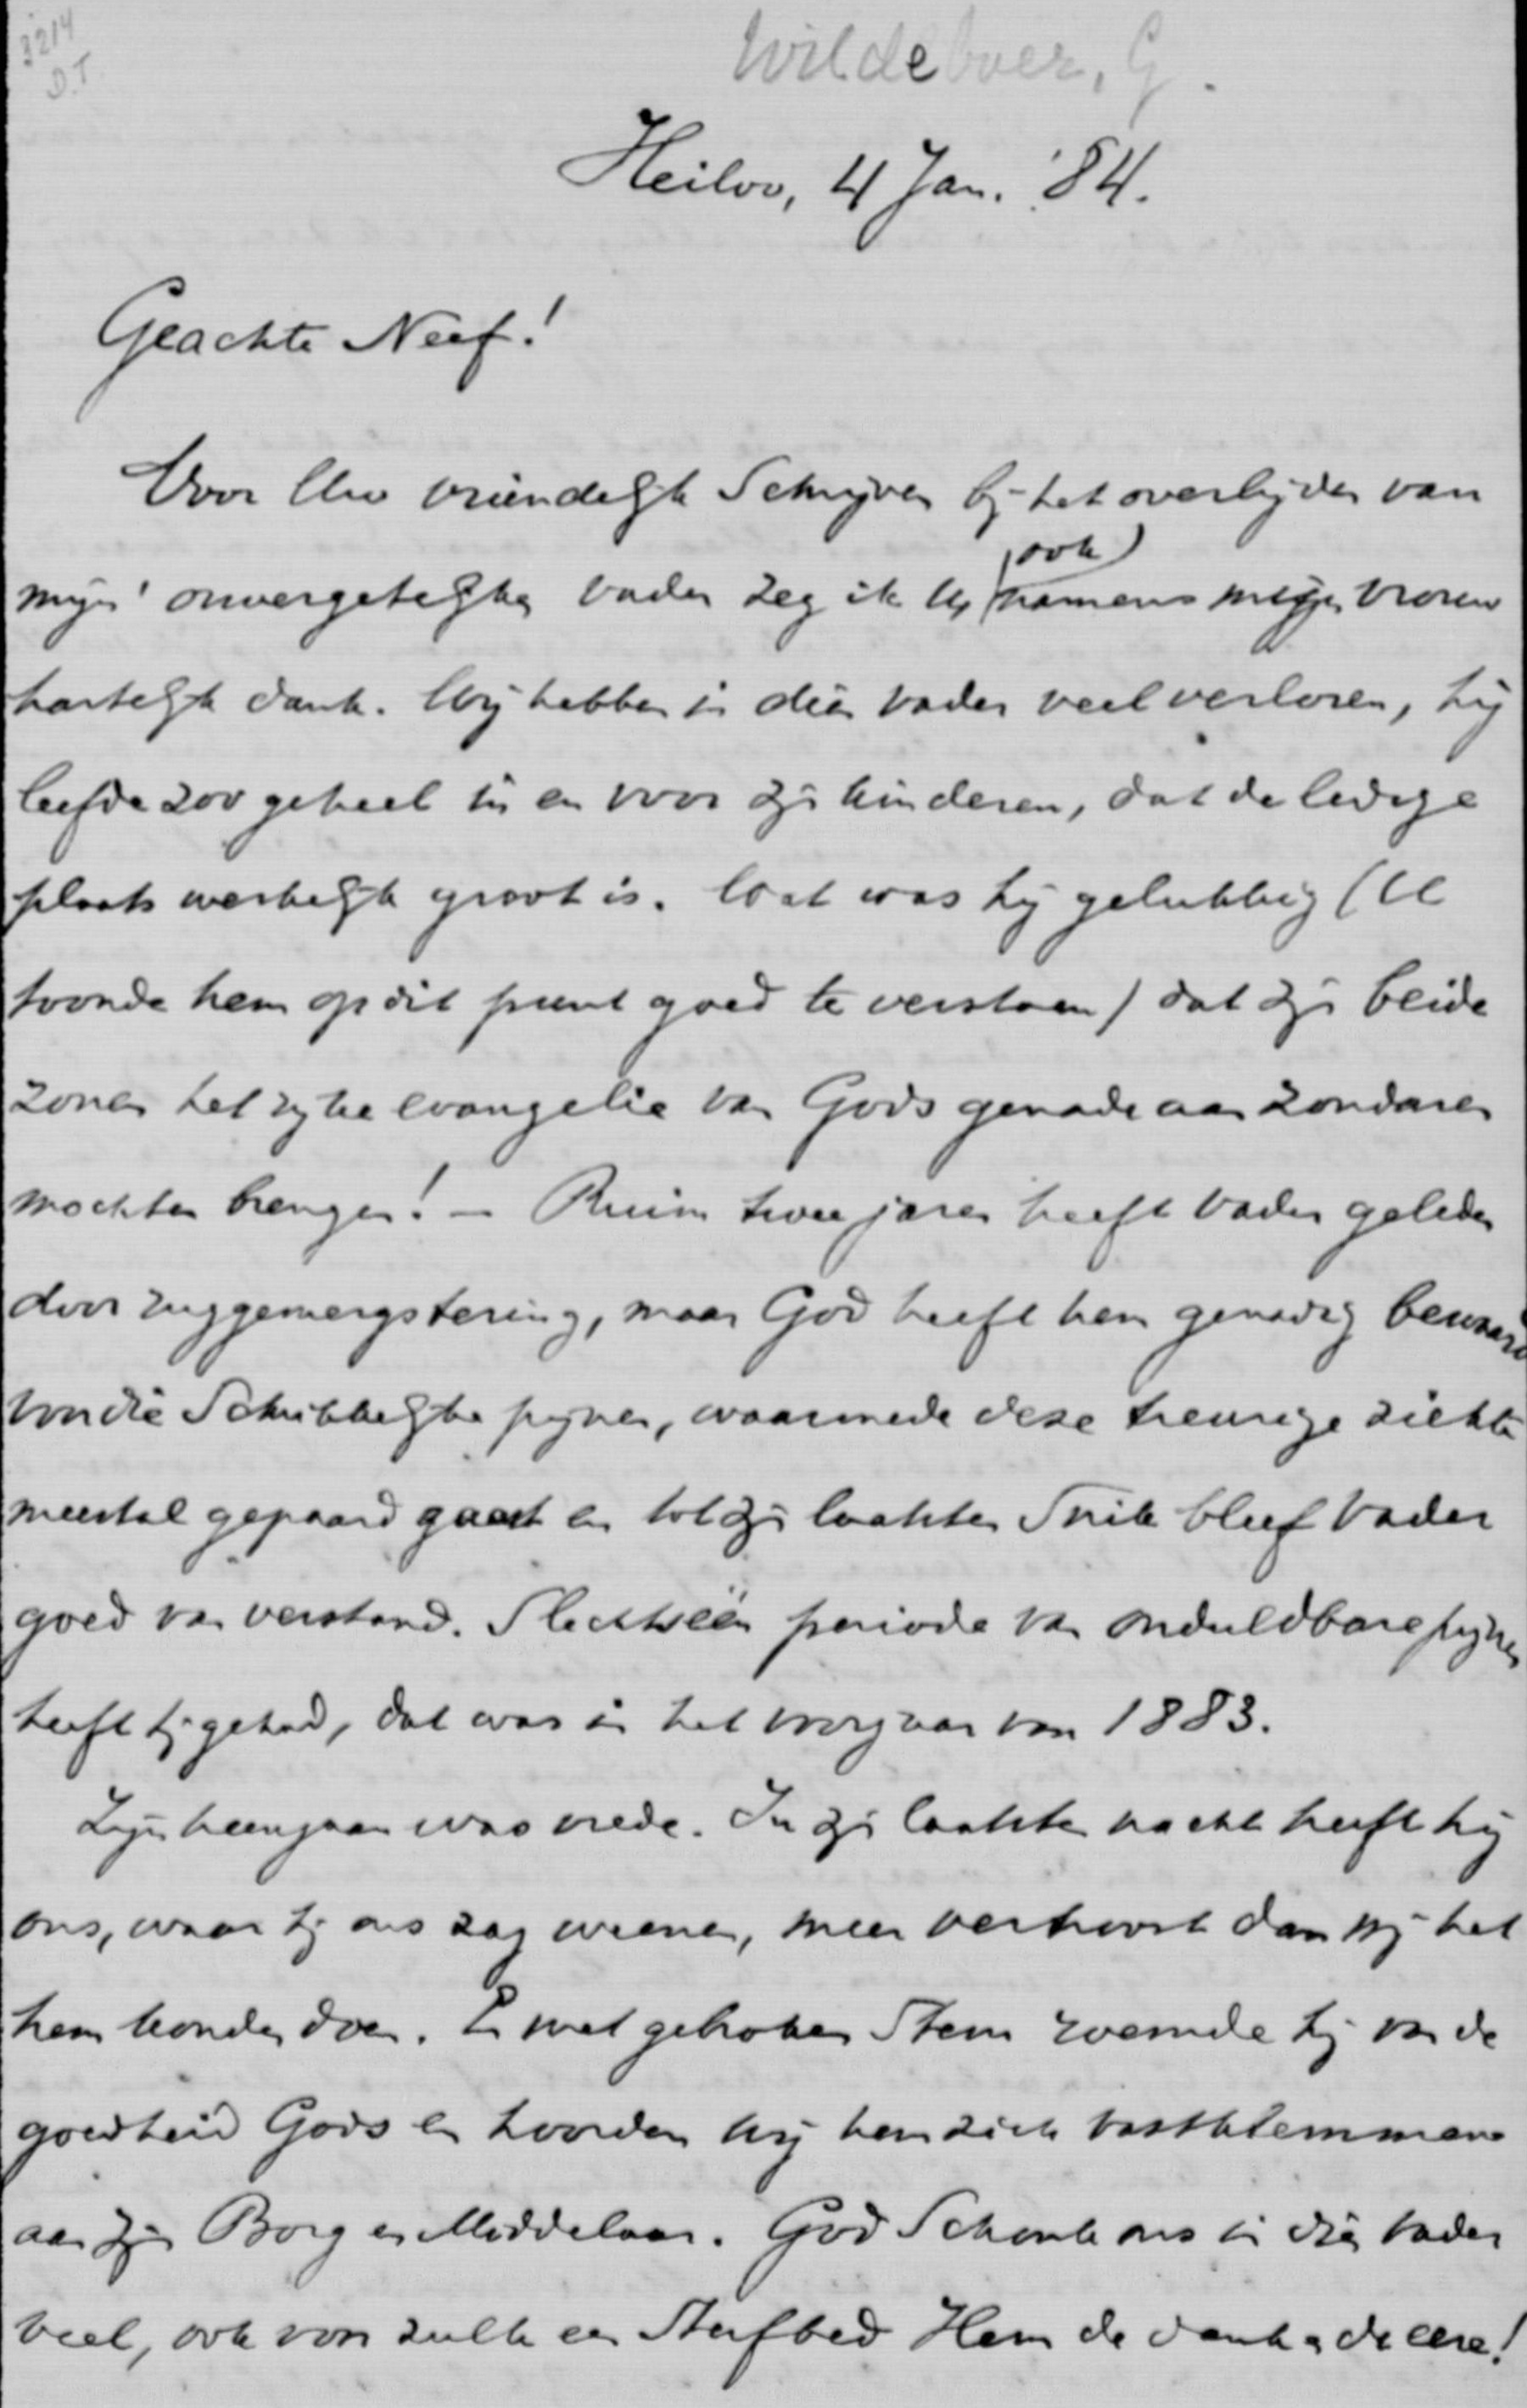 3214
D.T.
Wildeboer, G.
Heiloo, 4 Jan. '84.
Geachte Neef!
Voor Uw vriendelijk schrijven bij het overlijden van
ook
mijn' onvergetelijken vader zeg ik U, namens mijn vrouw
hartelijk dank. Wij hebben in dien vader veel verloren, hij
leefde zoo geheel in en voor zijn kinderen, dat de ledige
plaats werkelijk groot is. Wat was hij gelukkig (U
toonde hem op dit punt goed te verstaan) dat zijn beide
zonen het rijke evangelie van Gods genade aan zondaren
mochten brengen! — Ruim twee jaren heeft vader geleden
door ruggemergstering, maar God heeft hem genadig bewaard
voor die schrikkelijke pijnen, waarmede deze treurige ziekte
meestal gepaard gaat en tot zijn laatsten snik bleef vader
goed van verstand. Slechts één periode van onduldbare pijnen
heeft hij gehad, dat was in het voorjaar van 1883.
Zijn heengaan was vrede. In zijn laatste nacht heeft hij
ons, waar hij ons zag weenen, meer vertroost dan wij het
hem konden doen. En met gebroken stem roemde hij van de
goedheid Gods en hoorden wij hem zich vastklemmen
aan zijn Borg en Middelaar. God schonk ons in dien vader
veel, ook voor zulk een sterfbed Hem de dank en de eere!